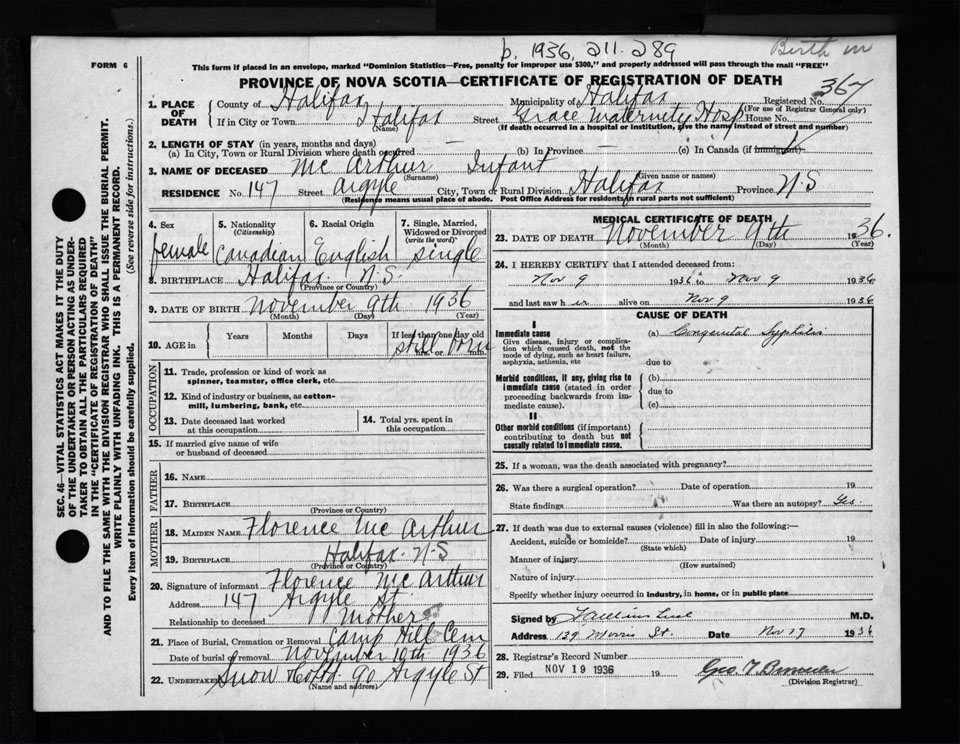 b. 1936, 211. 289
Birth in
FORM 6
This form if placed in an envelope, marked "Dominion Statistics—Free, penalty for improper use $300," and properly addressed will pass through the mail "FREE"
PROVINCE OF NOVA SCOTIA—CERTIFICATE OF REGISTRATION OF DEATH
367
1. PLACE OF DEATH
County of Halifax Municipality of Halifax Registered No.
(For use of Registrar General only)
If in City or Town Halifax Street Grace Maternity Hosp House No.
(Name) (If death occurred in a hospital or institution, give the name instead of street and number)
2. LENGTH OF STAY (in years, months and days)
(a) In City, Town or Rural Division where death occurred — (b) In Province — (c) In Canada (if immigrant)
3. NAME OF DECEASED Mc Arthur Infant
(Surname) (Given name or names)
RESIDENCE No. 147 Street Argyle City, Town or Rural Division Halifax Province N-S
(Residence means usual place of abode. Post Office Address for residents in rural parts not sufficient)
4. Sex
female
5. Nationality
(Citizenship)
Canadian
6. Racial Origin
English
7. Single, Married, Widowed or Divorced
(write the word)
single
8. BIRTHPLACE Halifax N.S.
(Province or Country)
9. DATE OF BIRTH November 9th 1936
(Month) (Day) (Year)
10. AGE in
Years Months Days If less than one day old
still born
hrs. or min.
OCCUPATION
11. Trade, profession or kind of work as
spinner, teamster, office clerk, etc.
12. Kind of industry or business, as cotton-
mill, lumbering, bank, etc.
13. Date deceased last worked
at this occupation
14. Total yrs. spent in
this occupation
15. If married give name of wife
or husband of deceased
FATHER
16. NAME
17. BIRTHPLACE
(Province or Country)
MOTHER
18. MAIDEN NAME Florence Mc Arthur
19. BIRTHPLACE Halifax. N-S
(Province or Country)
20. Signature of informant Florence Mc Arthur
Address 147 Argyle St.
Relationship to deceased Mother
21. Place of Burial, Cremation or Removal Camp Hill Cem
Date of burial or removal November 10th 1936
22. Undertaker Snow & Co Ltd. 90 Argyle St
(Name and address)
MEDICAL CERTIFICATE OF DEATH
23. DATE OF DEATH November 9th 1936.
(Month) (Day) (Year)
24. I HEREBY CERTIFY that I attended deceased from:
Nov 9 1936 to Nov 9 1936
and last saw her alive on Nov 9 1936
CAUSE OF DEATH
I
Immediate cause
Give disease, injury or complication which caused death, not the mode of dying, such as heart failure, asphyxia, asthenia, etc
(a) Congenital Syphilis
due to
Morbid conditions, if any, giving rise to immediate cause (stated in order proceeding backwards from immediate cause).
(b)
due to
(c)
II
Other morbid conditions (if important) contributing to death but not causally related to immediate cause.
25. If a woman, was the death associated with pregnancy?
26. Was there a surgical operation? Date of operation 19
State findings Was there an autopsy? Yes.
27. If death was due to external causes (violence) fill in also the following:—
Accident, suicide or homicide? Date of injury 19
(State which)
Manner of injury
(How sustained)
Nature of injury
Specify whether injury occurred in industry, in home, or in public place
Signed by M.D.
Address 139 Morris St. Date Nov 17 1936
28. Registrar's Record Number
29. Filed NOV 19 1936 19
(Division Registrar)
SEC. 46—VITAL STATISTICS ACT MAKES IT THE DUTY
OF THE UNDERTAKER OR PERSON ACTING AS UNDER-
TAKER TO OBTAIN ALL THE PARTICULARS REQUIRED
IN THE "CERTIFICATE OF REGISTRATION OF DEATH"
AND TO FILE THE SAME WITH THE DIVISION REGISTRAR WHO SHALL ISSUE THE BURIAL PERMIT.
WRITE PLAINLY WITH UNFADING INK. THIS IS A PERMANENT RECORD.
Every item of information should be carefully supplied. (See reverse side for instructions.)